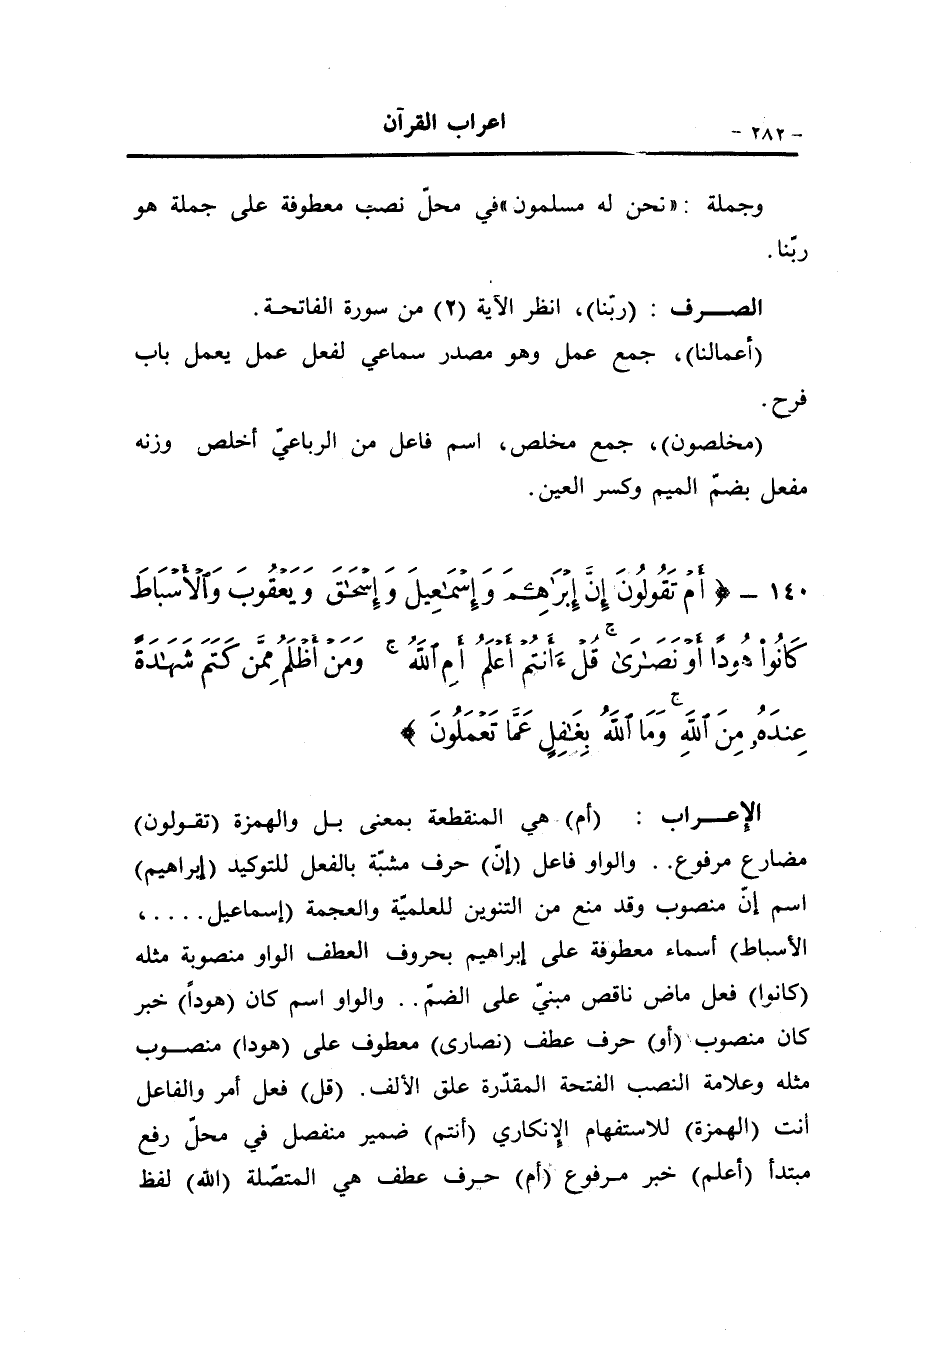 - ٢٨٢ -
اعراب القرآن
وجملة : «نحن له مسلمون» في محلّ نصب معطوفة على جملة هو
ربّنا .
الصــرف : (ربّنا)، انظر الآية (٢) من سورة الفاتحة.
(أعمالنا)، جمع عمل وهو مصدر سماعي لفعل عمل يعمل باب
فرح.
(مخلصون)، جمع مخلص، اسم فاعل من الرباعيّ أخلص وزنه
مفعل بضمّ الميم وكسر العين.
١٤٠ - ﴿ أَمْ تَقُولُونَ إِنَّ إِبْرَٰهِـۧمَ وَإِسْمَٰعِيلَ وَإِسْحَٰقَ وَيَعْقُوبَ وَٱلْأَسْبَاطَ
كَانُوا۟ هُودًا أَوْ نَصَٰرَىٰ ۗ قُلْ ءَأَنتُمْ أَعْلَمُ أَمِ ٱللَّهُ ۗ وَمَنْ أَظْلَمُ مِمَّن كَتَمَ شَهَٰدَةً
عِندَهُۥ مِنَ ٱللَّهِ ۗ وَمَا ٱللَّهُ بِغَٰفِلٍ عَمَّا تَعْمَلُونَ ﴾
الإعــراب : (أم) هي المنقطعة بمعنى بل والهمزة (تقولون)
مضارع مرفوع. . والواو فاعل (إنّ) حرف مشبّة بالفعل للتوكيد (إبراهيم)
اسم إنّ منصوب وقد منع من التنوين للعلميّة والعجمة (إسماعيل. . . . ،
الأسباط) أسماء معطوفة على إبراهيم بحروف العطف الواو منصوبة مثله
(كانوا) فعل ماض ناقص مبنيّ على الضمّ. . والواو اسم كان (هوداً) خبر
كان منصوب (أو) حرف عطف (نصارى) معطوف على (هودا) منصــوب
مثله وعلامة النصب الفتحة المقدّرة علق الألف. (قل) فعل أمر والفاعل
أنت (الهمزة) للاستفهام الإنكاري (أنتم) ضمير منفصل في محلّ رفع
مبتدأ (أعلم) خبر مرفوع (أم) حرف عطف هي المتصّلة (الله) لفظ